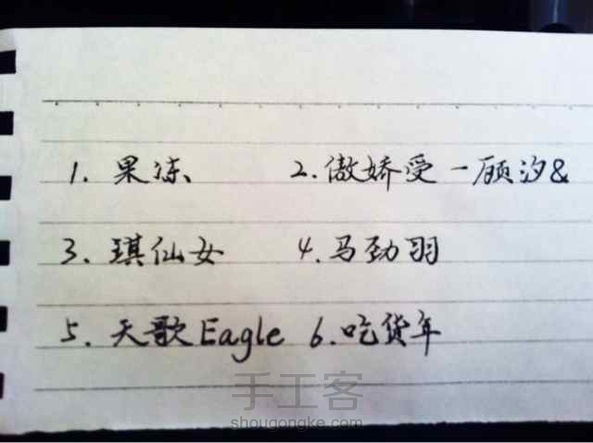 1. 果冻 2. 傲娇受一顾汐&
3. 琪仙女 4. 马劲羽
5. 天歌Eagle 6. 吃货年
手工客
shougongke.com